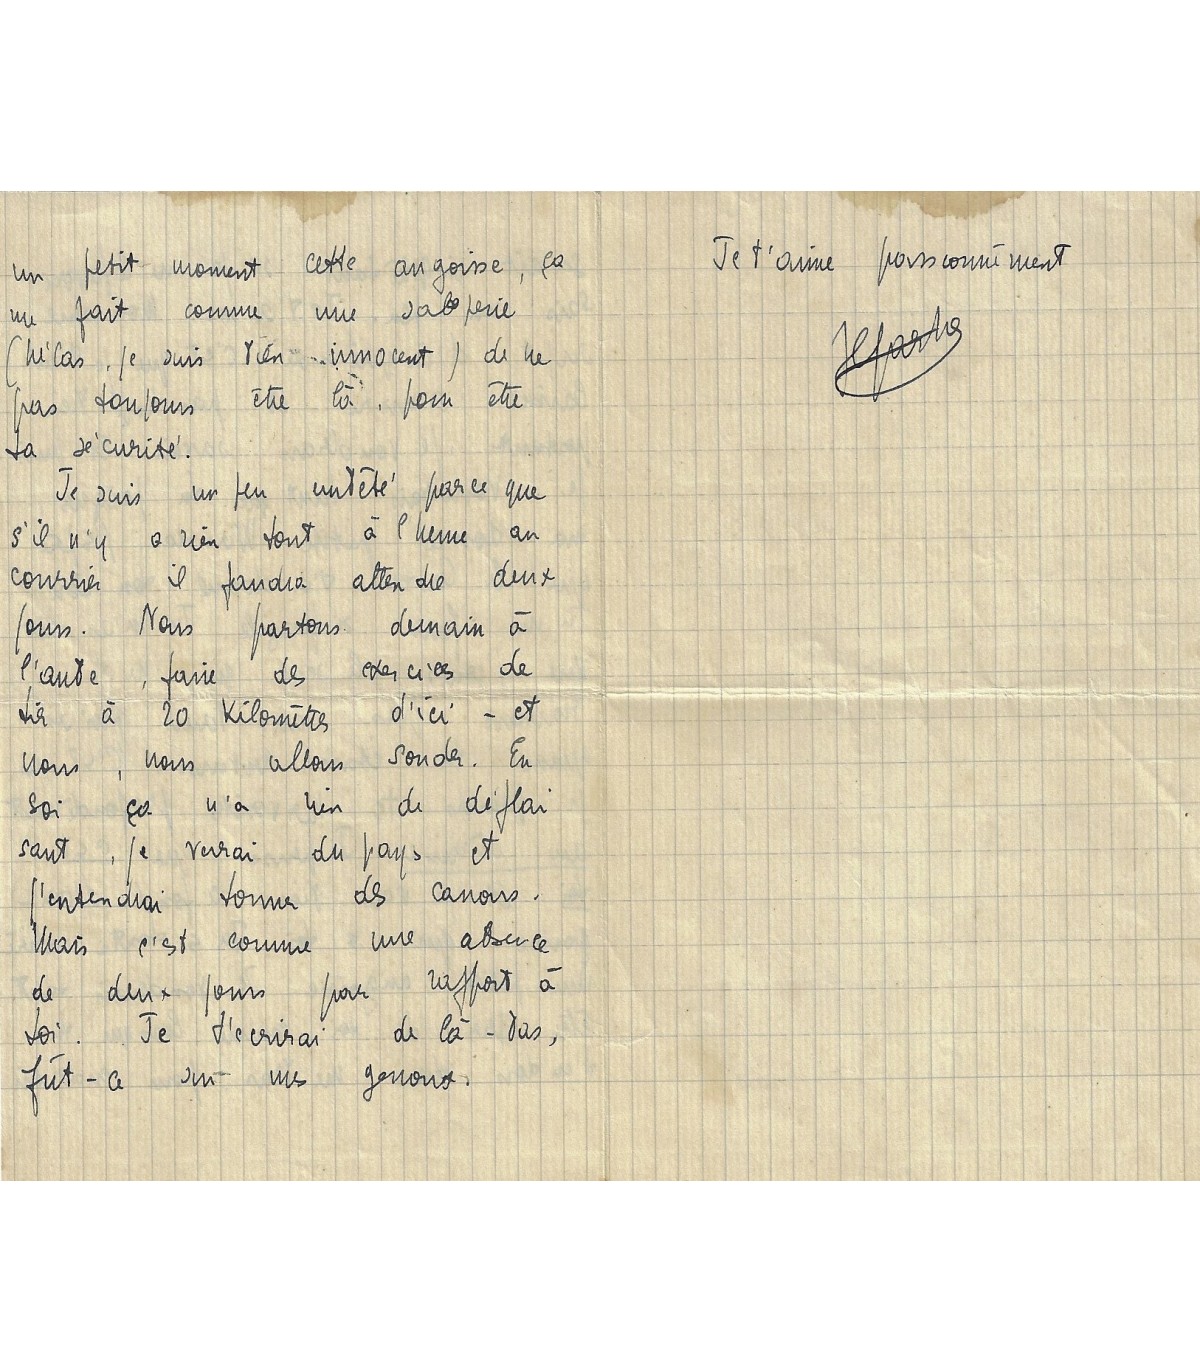 un petit moment cette angoisse, ça
me fait comme une saloperie
(hélas, je suis bien innocent) de ne
pas toujours être là, pour être
ta sécurité.
Je suis un peu embêté parce que
s'il n'y a rien tout à l'heure au
courrier il faudra attendre deux
jours. Nous partons demain à
l'aube, faire des exercices de
tir à 20 Kilomètres d'ici - et
nous, nous allons sonder. En
soi ça n'a rien de déplai
sant, je verrai du pays et
j'entendrai tonner des canons.
Mais c'est comme une absence
de deux jours par rapport à
toi. Je t'écrirai de là-bas,
fût-ce sur mes genoux.
Je t'aime passionnément